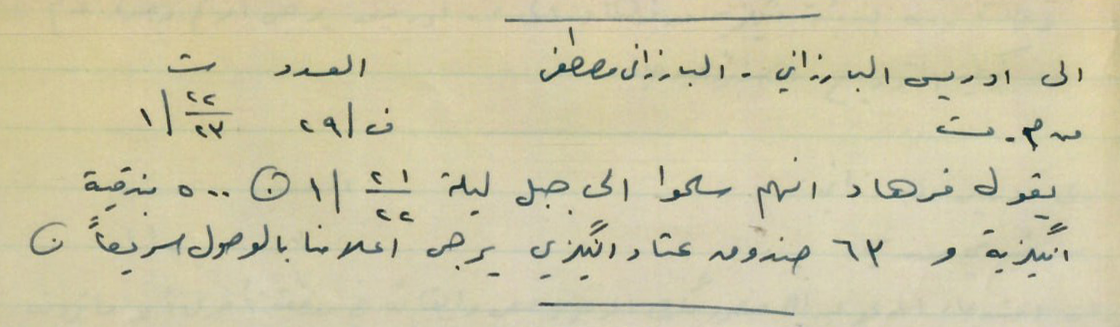 الى ادريس البارزاني - البارزاني مصطفى العدد ت
من م. ت ف/٢٩ ٢٢/٢٣/١
يقول فرهاد انهم سلموا الى جبل ليلة ٢١/٢٢/١ ⊙ ٥٠٠ بندقية
انگيزية و ٦٣ صندوق عتاد انگيزي يرجى اعلامنا بالوصول سريعاً ن